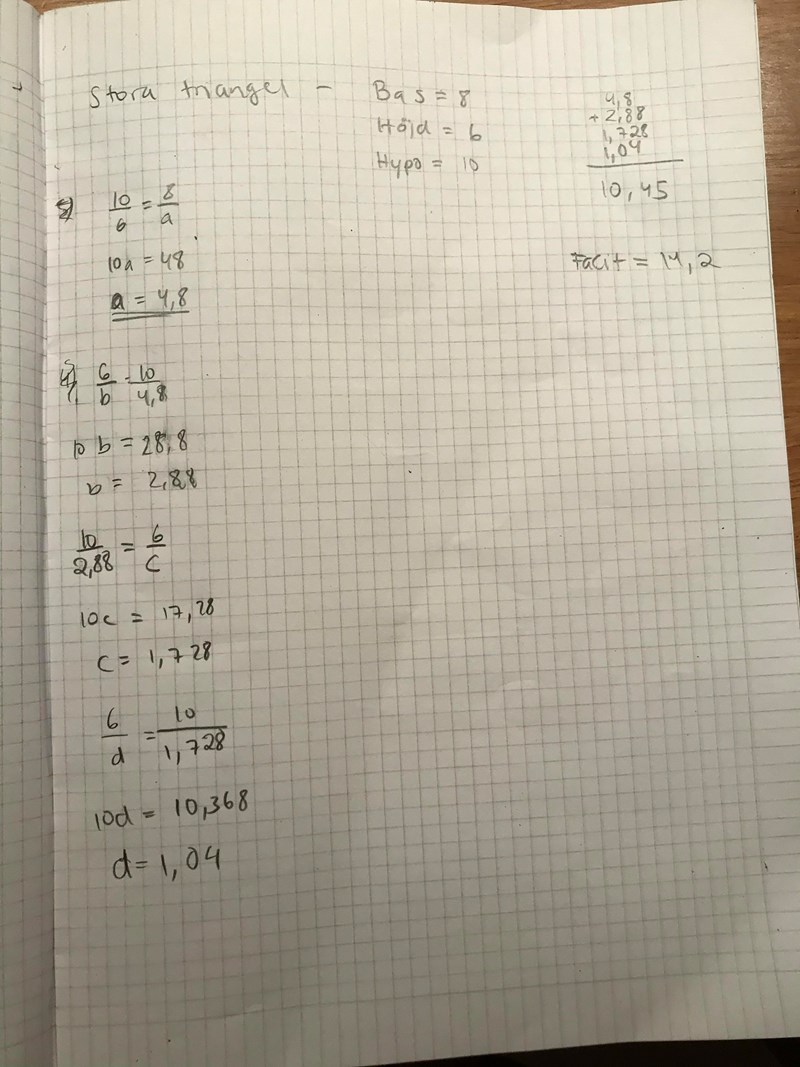 Stora triangel - Bas = 8
Höjd = 6
Hypo = 10
4,8
+ 2,88
1,728
1,04
10,45
Facit = 14,2
10/6 = 8/a
10a = 48
a = 4,8
6/b = 10/4,8
10 b = 28,8
b = 2,88
10/2,88 = 6/c
10c = 17,28
c = 1,728
6/d = 10/1,728
10d = 10,368
d = 1,04